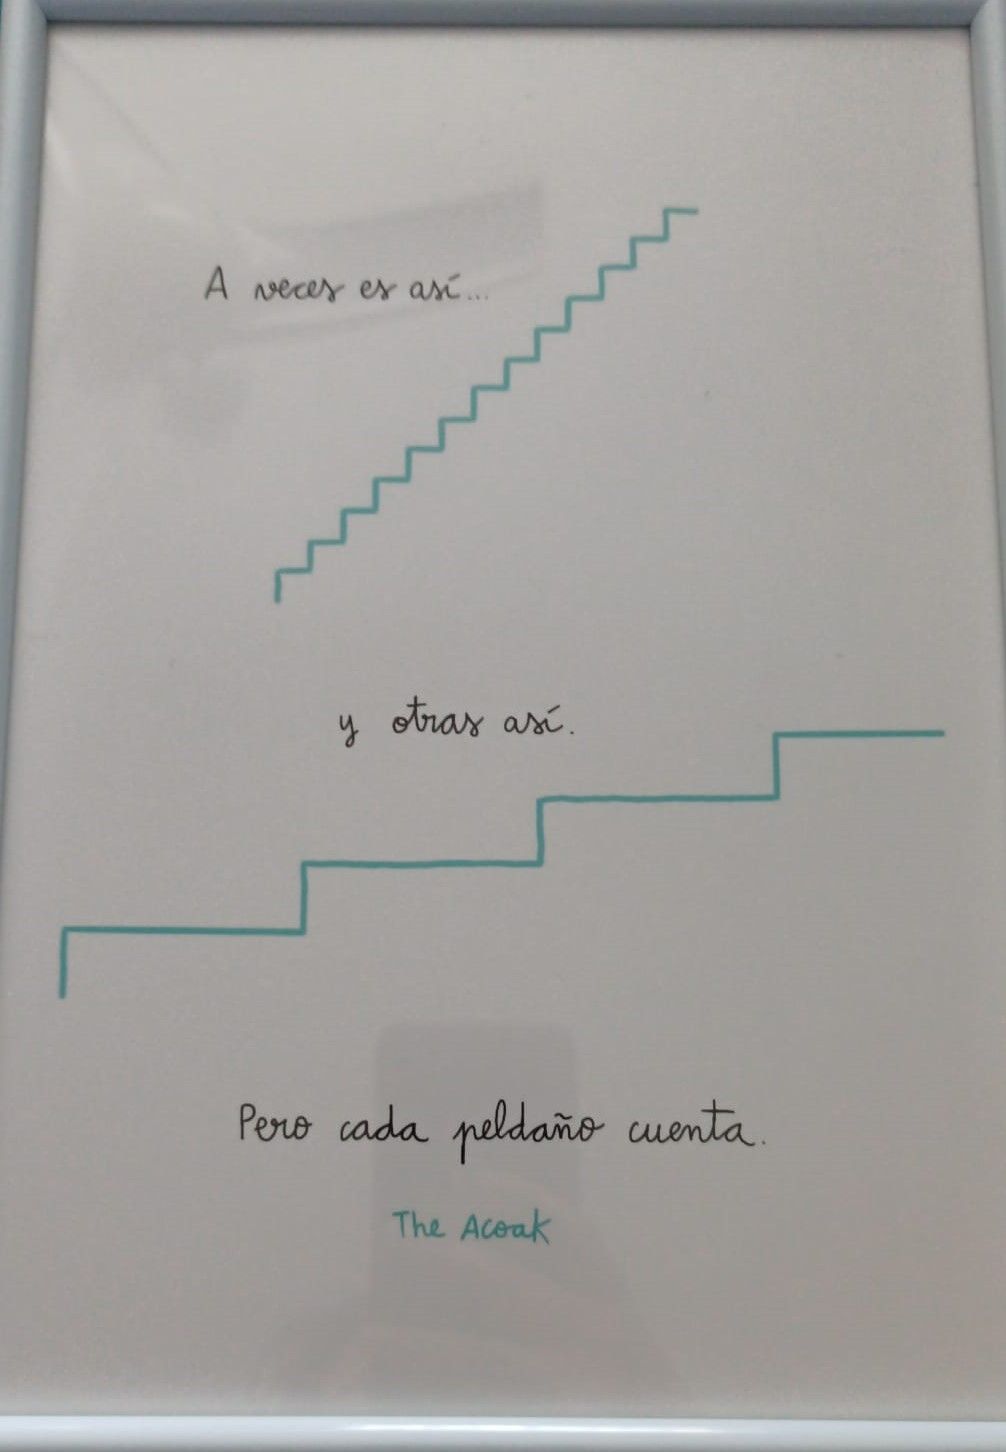 A veces es así...
y otras así.
Pero cada peldaño cuenta.
The Acoak